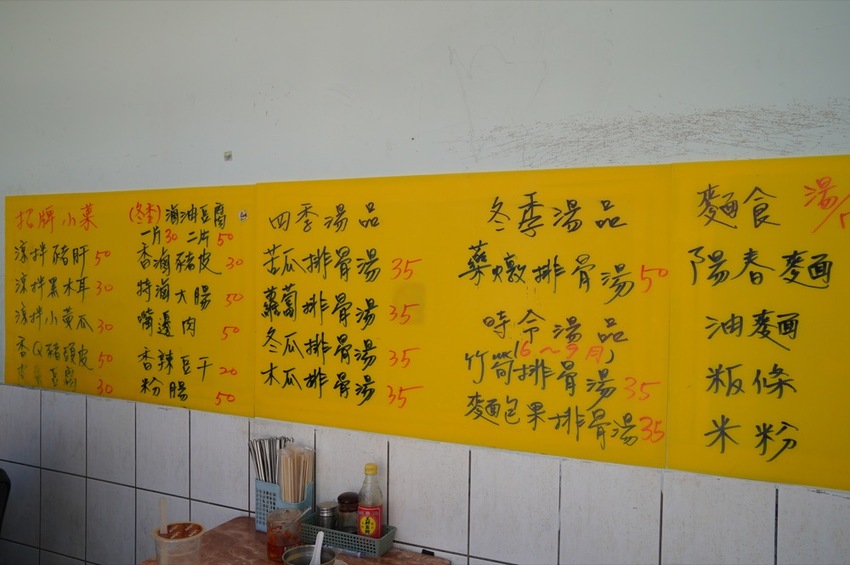 招牌小菜
涼拌豬肝 50
涼拌黑木耳 30
涼拌小黃瓜 30
香Q豬頭皮 50
30
(冬季) 滷油豆腐
一片30 二片50
香滷豬皮 30
特滷大腸 50
嘴邊肉 50
香辣豆干 20
粉腸 50
四季湯品
苦瓜排骨湯 35
蘿蔔排骨湯 35
冬瓜排骨湯 35
木瓜排骨湯 35
冬季湯品
藥燉排骨湯 50
時令湯品
(6～9月)
竹筍排骨湯 35
麵包果排骨湯 35
麵食 湯/
陽春麵
油麵
粄條
米粉